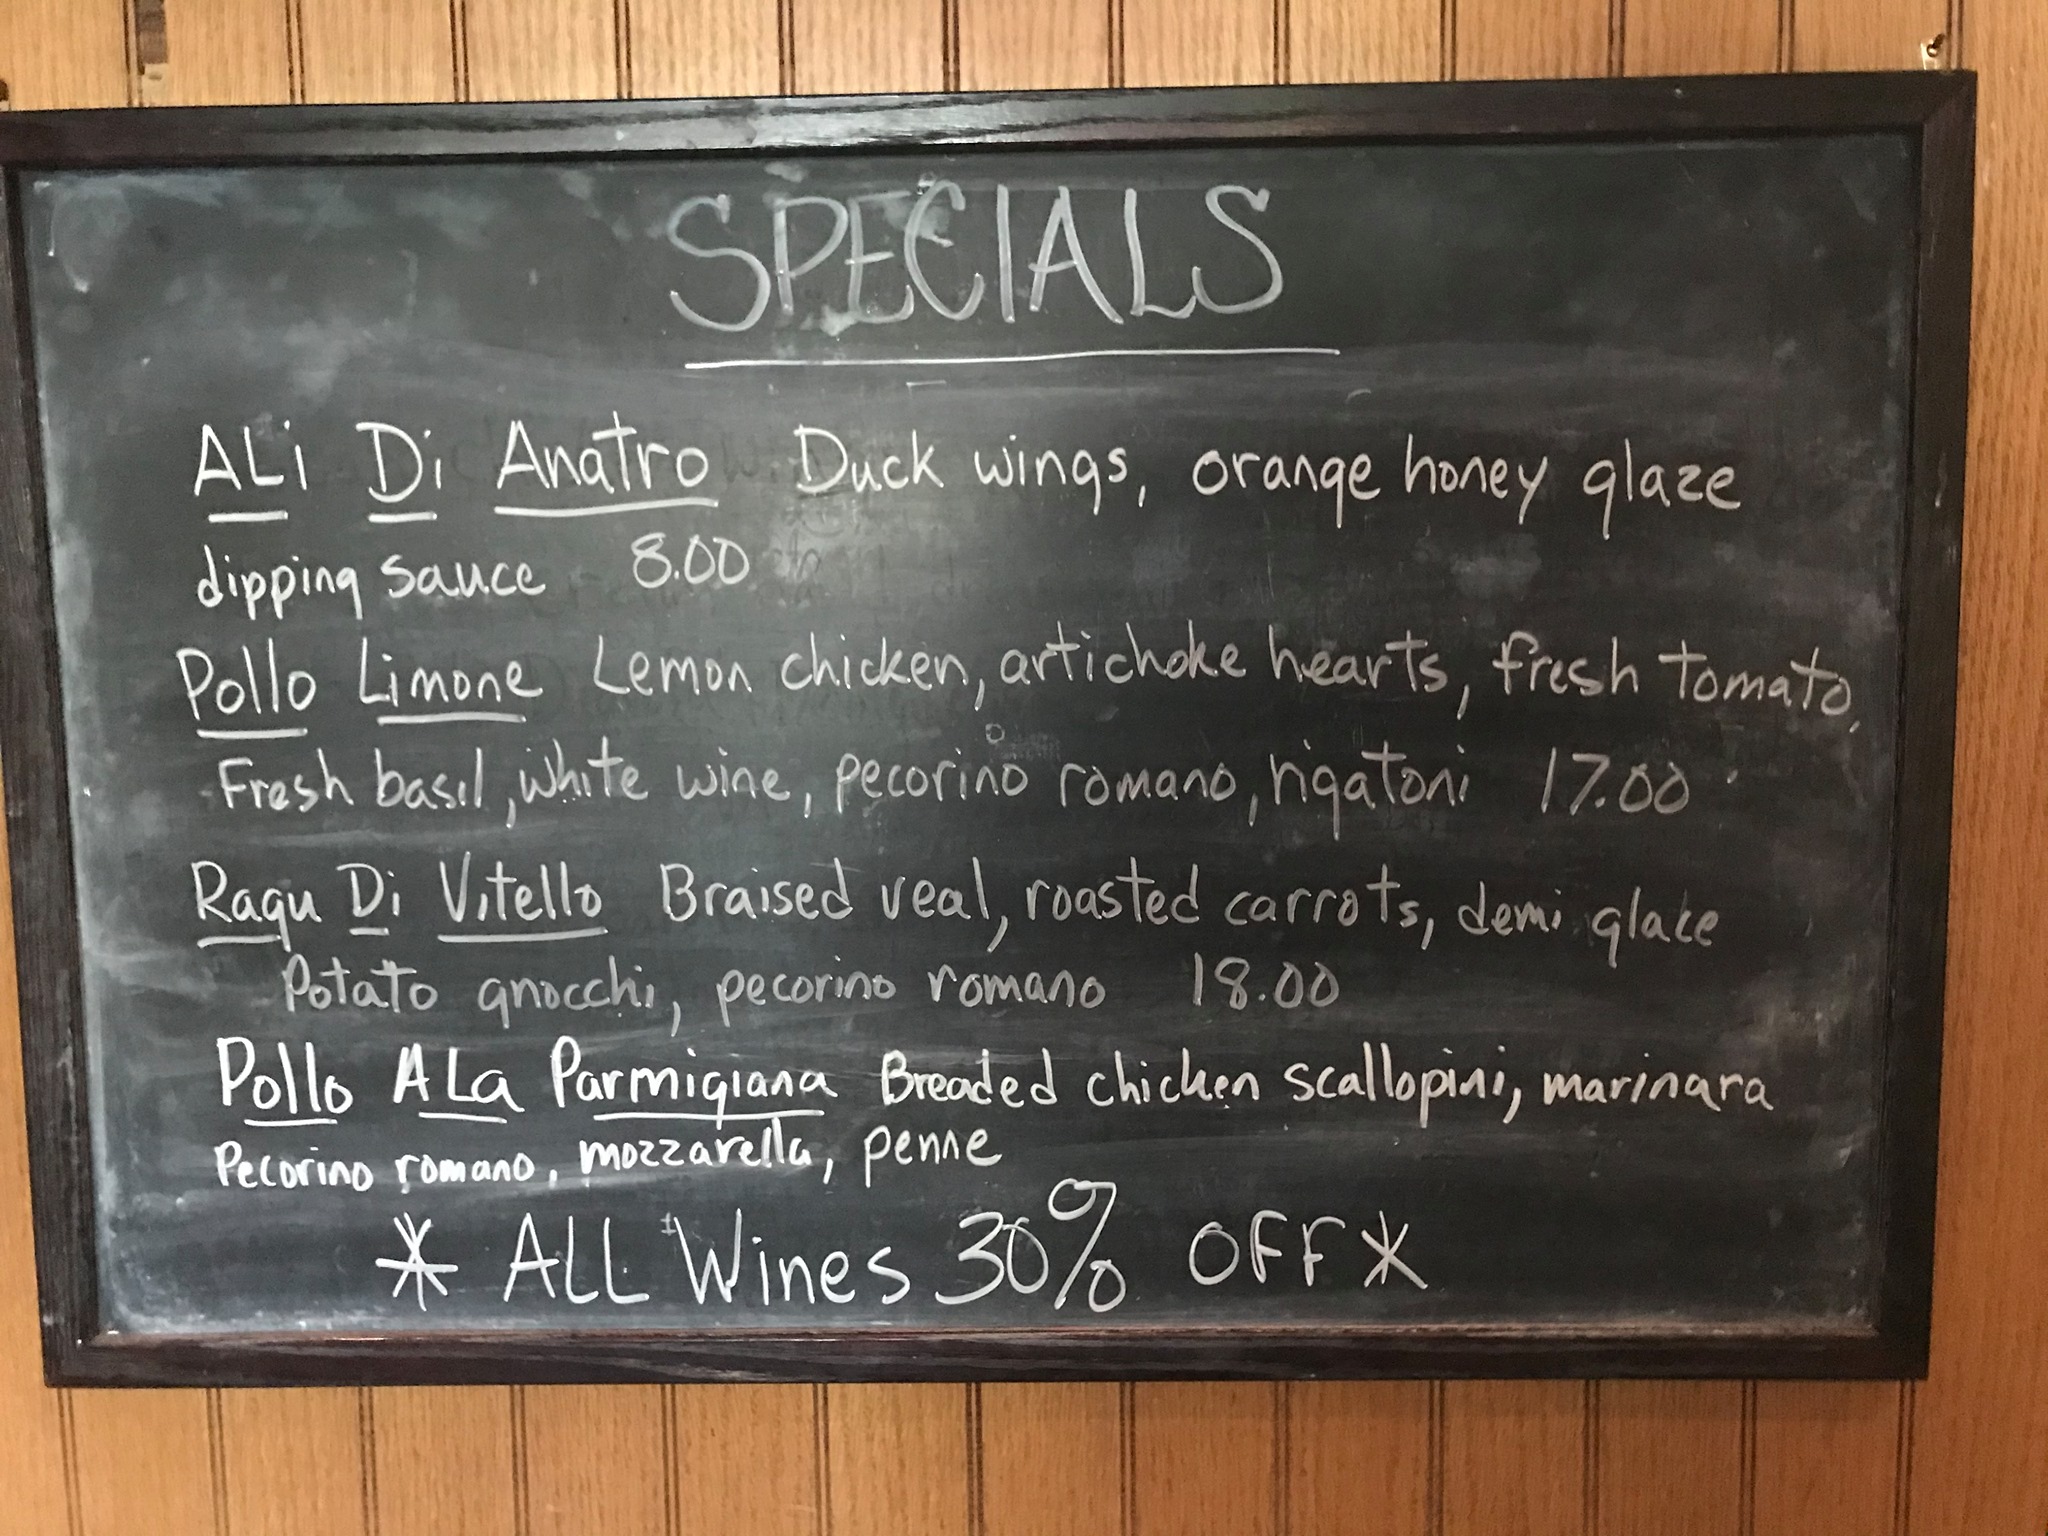 SPECIALS
ALi Di Anatro Duck wings, orange honey glaze
dipping sauce 8.00
Pollo Limone Lemon chicken, artichoke hearts, fresh tomato,
Fresh basil, white wine, pecorino romano, rigatoni 17.00
Ragu Di Vitello Braised veal, roasted carrots, demi glace
Potato gnocchi, pecorino romano 18.00
Pollo A La Parmigiana Breaded chicken scallopini, marinara
Pecorino romano, mozzarella, penne
* ALL Wines 30% OFF *